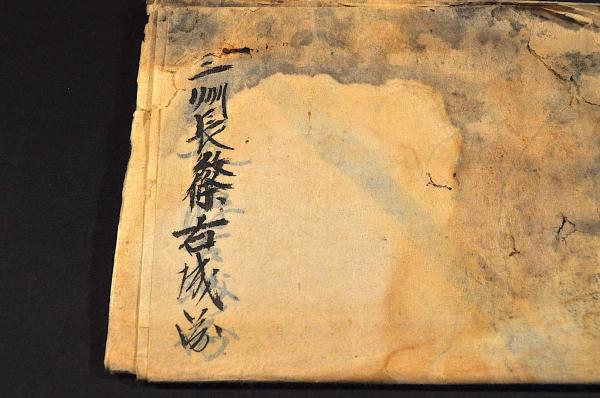 三州長篠古城図